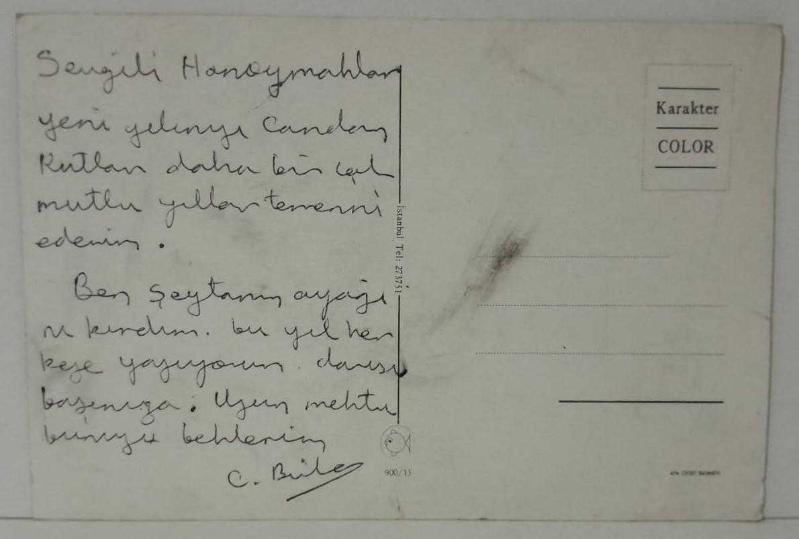 Sevgili Hanoymahlar
yeni yılınızı Candan
Kutlar daha bir çok
mutlu yıllar temenni
ederim.
Ben Şeytanın ayağı
nı kırdım. bu yıl her
keze yazıyorum. darısı
başınıza. Uzun mektu
bunuzu beklerim
C.
Karakter
COLOR
İstanbul Tel: 273751
900/13